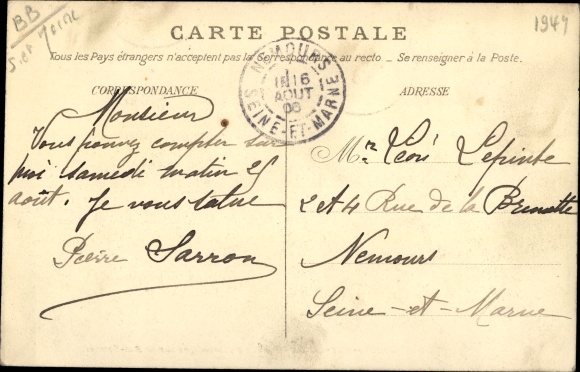 BB
S. et Marne
1949
CARTE POSTALE
Tous les Pays étrangers n'acceptent pas la Correspondance au recto — Se renseigner à la Poste.
NEMOURS
16
AOUT
06
SEINE-ET-MARNE
CORRESPONDANCE
Monsieur
Vous pouvez compter sur
moi samedi matin 25
août. Je vous salue
Pierre Sarron
ADRESSE
Mr Léon Lepinte
2 et 4 Rue de la
Nemours
Seine-et-Marne